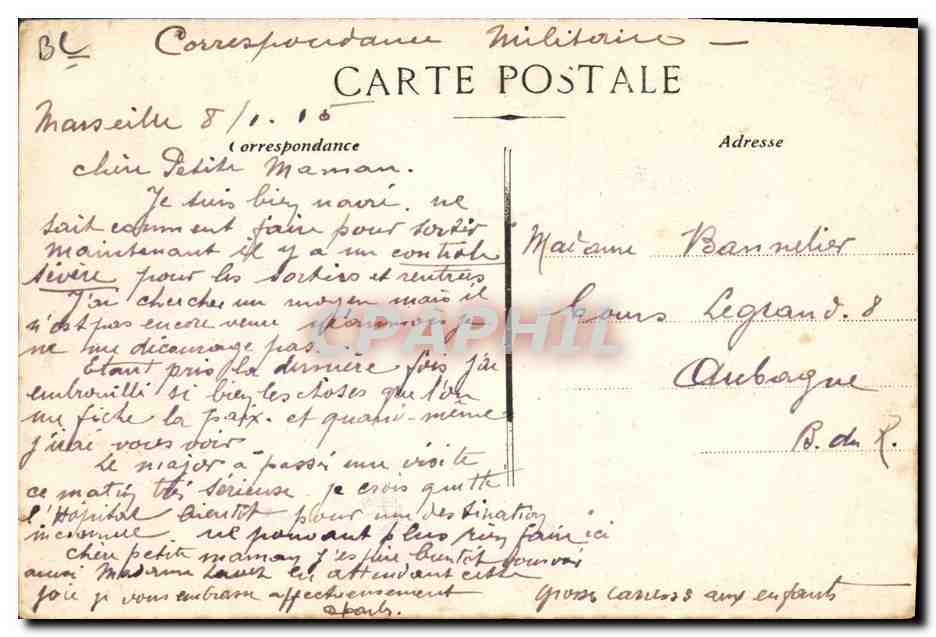 BC
Correspondance Militaire —
CARTE POSTALE
Marseille 8/1.15
Correspondance
Adresse
Chère Petite Maman.
Je suis bien navré. ne
sait comment faire pour sortir
maintenant il y a un controle
sévère pour les sorties et rentrées
J'ai chercher un moyen mais il
n'est pas encore venu néanmois je
ne me décourage pas.
Etant pris la dernière fois j'ai
embrouillé si bien les choses que l'on
me fiche la paix. et quand-même
j'irai vous voir
Le major à passé une visite
ce matin très sérieuse. je crois quitté
l'Hôpital bientôt pour une destination
inconnue. ne pouvant plus rien faire ici
Chère petite maman j'espère bientôt vous voir
aussi Madame en attendant cette
joie je vous embrasse affectueusement
Madame Bannelier
Cours Legrand. 8
Aubagne
B. du R.
Grosses caresses aux enfants
CPAPHIL